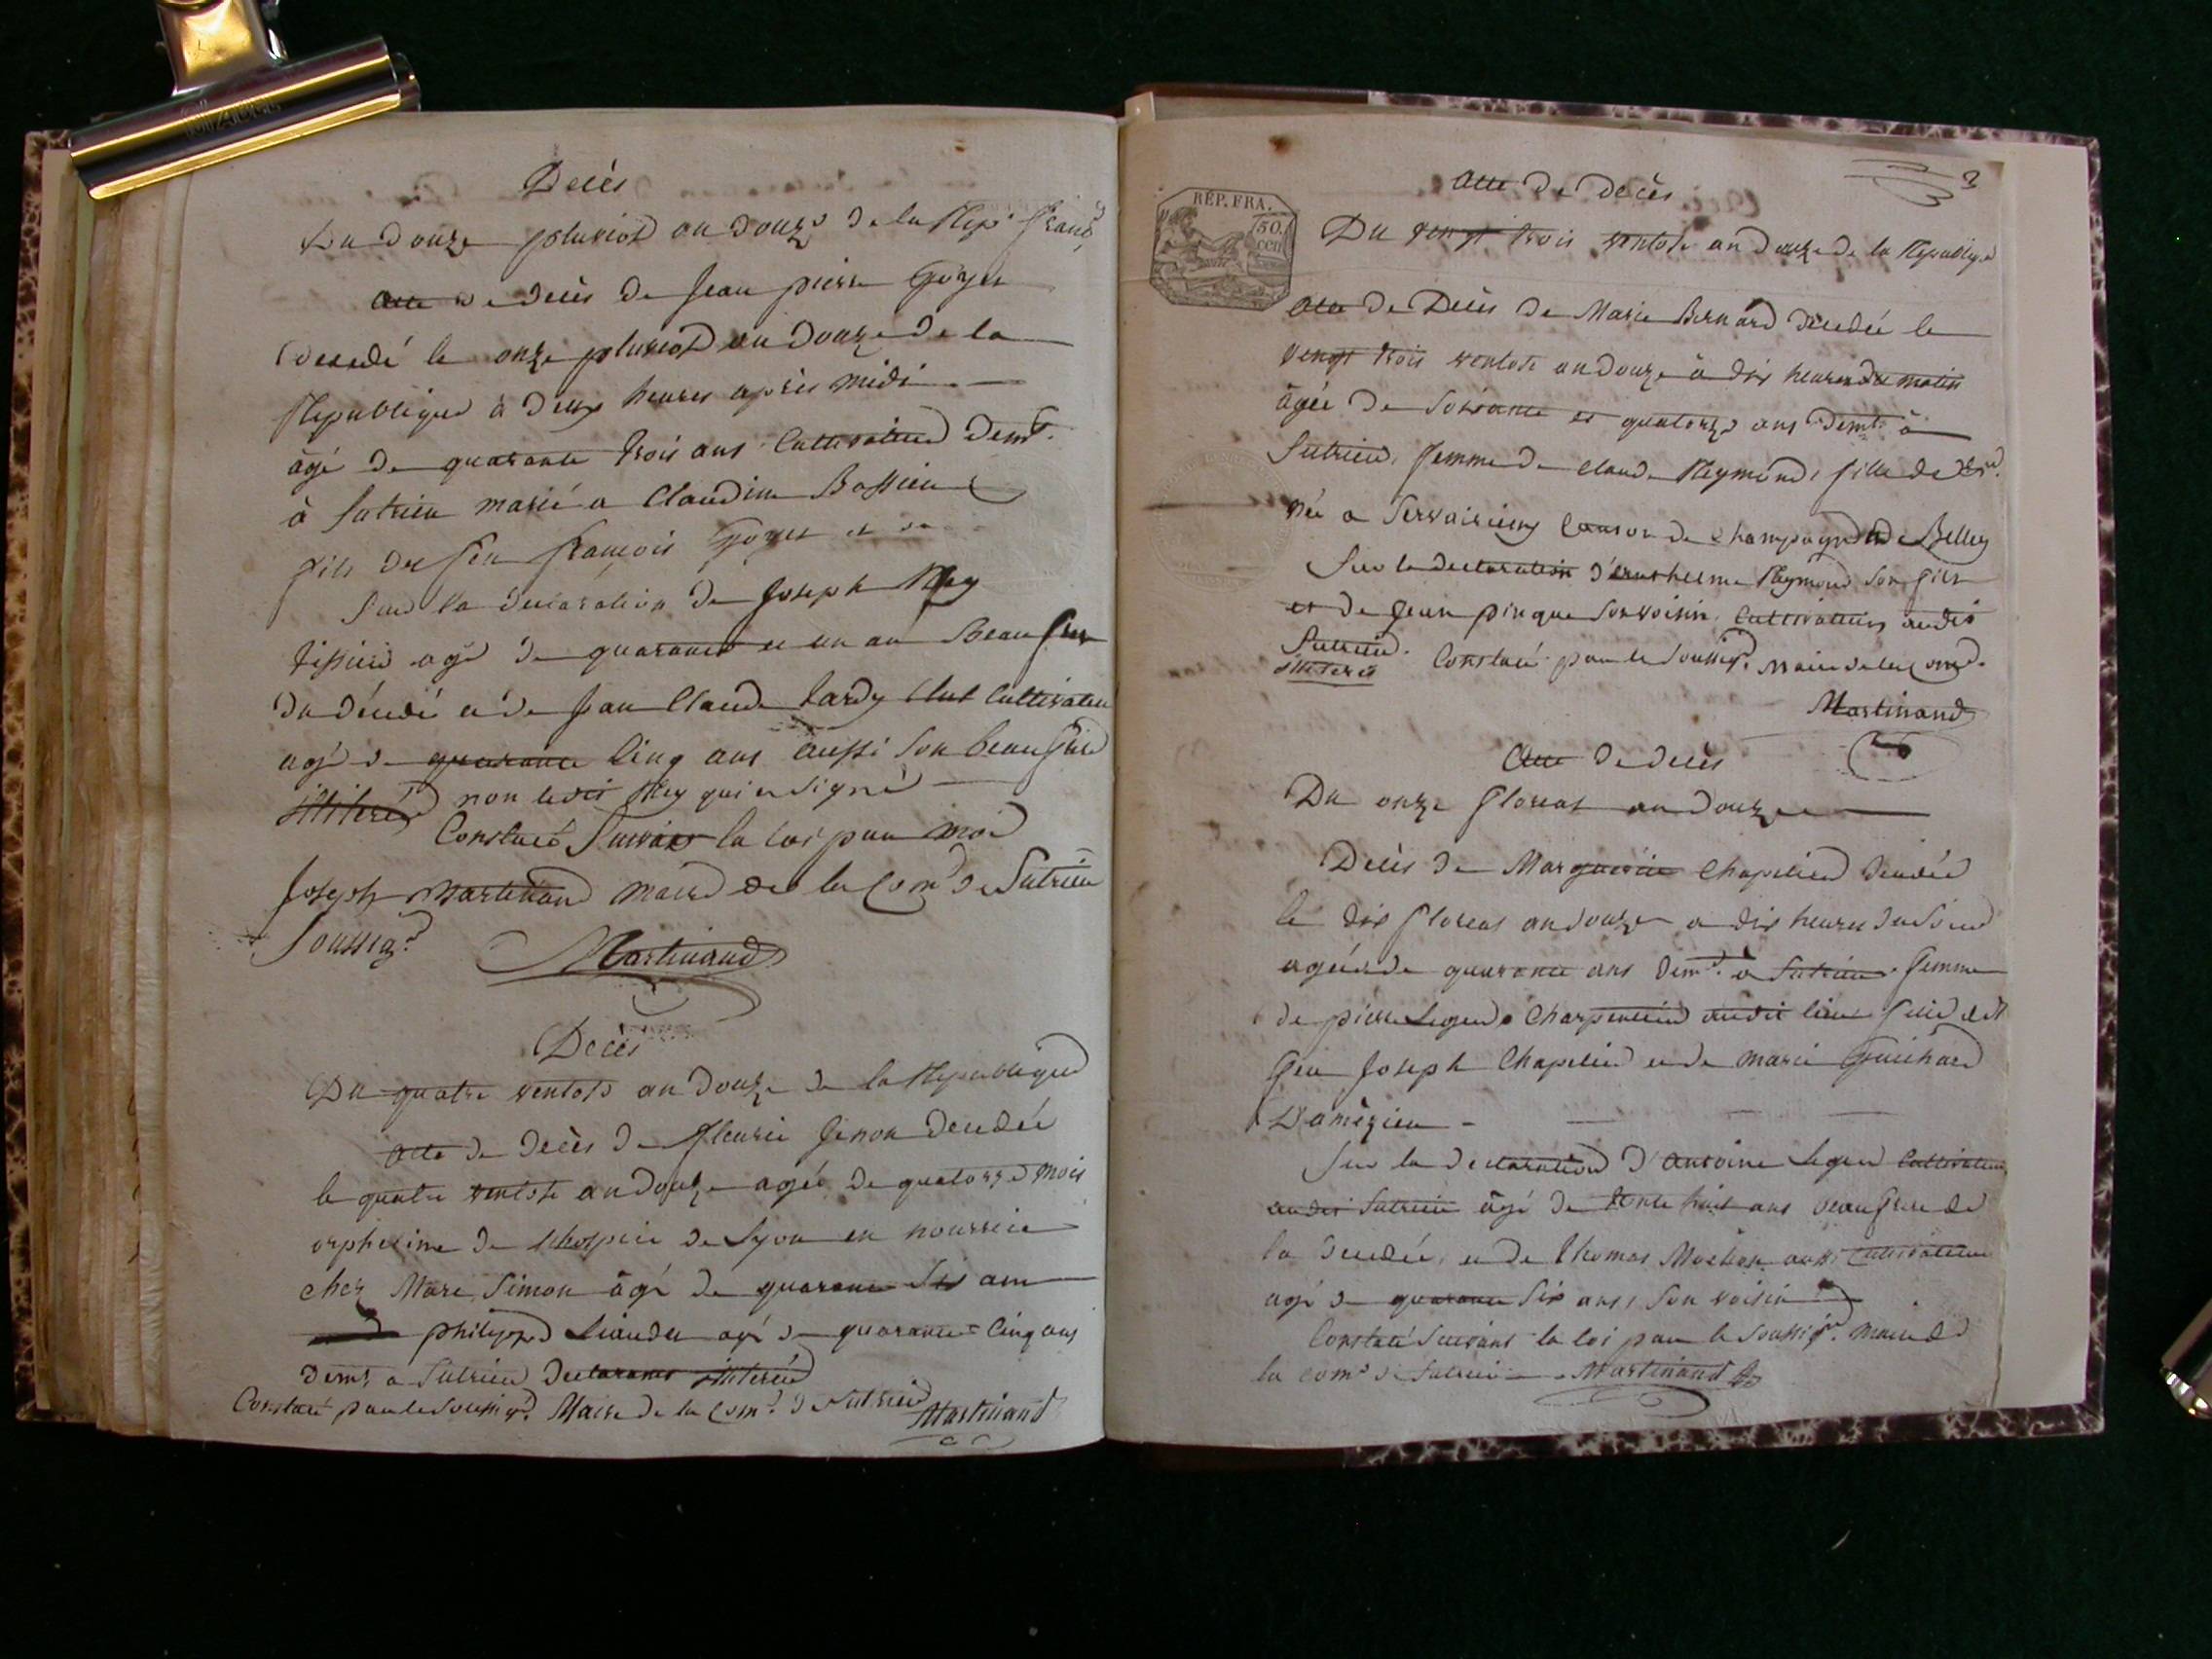 Décès
Du douze pluviose an douze de la Rep. franc.
Acte de decès de Jean pierre Goyet
decedé le onze pluviose an Douze de la
Republique à deux heures après midi
âgé de quarante trois ans Cultivateur demt.
à Sutrieu marié a Claudine Bossieu
fils de feu françois Goyet et de
Sur la declaration de Joseph Rey
tissier agé de quarante et un an Beau frere
du décédé et de Jean Claude tardy Cultivateur
agé de quarante Cinq ans aussi Son beau frere
illiteré non ledit Rey qui a Signé
Constaté Suivant la loi par moi
Joseph Martinand maire de la Com. de Sutrieu
Soussig.
Martinand
Décès
Du quatre ventose an Douze de la Republique
Acte de Decès de fleurie Genon decedée
le quatre ventose an douze agée de quatorze mois
orpheline de l'hospice de Lyon en nourrice
chez Marc Simon âgé de quarante Six ans
philippe Liaudet agé de quarante Cinq ans
demt. a Sutrieu declarants illiterés
Constaté par le Soussig. Maire de la Com. de Sutrieu Martinand
REP. FRA.
50
cen
Acte de decès
Du vengt trois ventose an douze de la Republique
Acte de Decès de Marie Bernard decedée le
vengt trois ventose an douze à dix heures du matin
âgée de Soixante et quatorze ans demt. à
Sutrieu, femme de Claude Reymond, fille de
née a Canton de Champagne de Belley
Sur la declaration d'anthelme Reymond Son fils
et de Jean pinque Son voisin, Cultivateurs audit
Sutrieu.
illiterés Constaté par le Soussig. Maire de la Com.
Martinand
Acte de decès
Du onze floreal an douze
Decès de Marguerite Chapelier decedée
le dix floreal an douze a dix heures du Soir
agée de quarante ans demt. a Sutrieu. femme
de pierre Leger Charpentier audit lieu fille de
feu Joseph Chapelier et de marie Guichard
D'amèzieu
Sur la declaration d'Antoine Leger Cultivateur
audit Sutrieu âgé de trente huit ans beau frere de
la decedée, et de thomas Mochon aussi Cultivateur
agé de quarante Six ans, Son voisin
Constaté Suivant la loi par le Soussig. maire de
la com. de Sutrieu Martinand